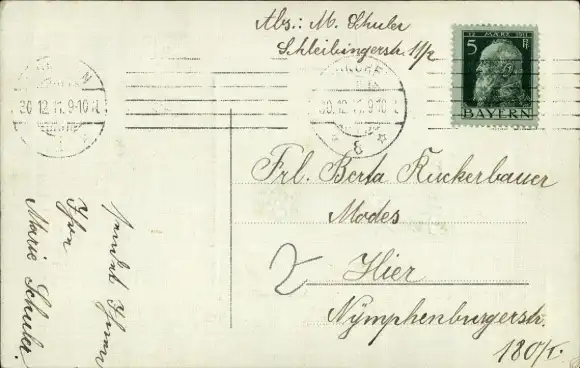 Abs.: M. Schuler
Schleibingerstr. 11/2
12. MÄRZ 1911
5 Pf
BAYERN
30.12.11.9-10
30.12.11.9-10
8
Frl. Berta Kuckerbauer
Modes
2 Hier
Nymphenburgerstr.
180/I.
sendet Ihnen
Ihre
Marie Schuler.